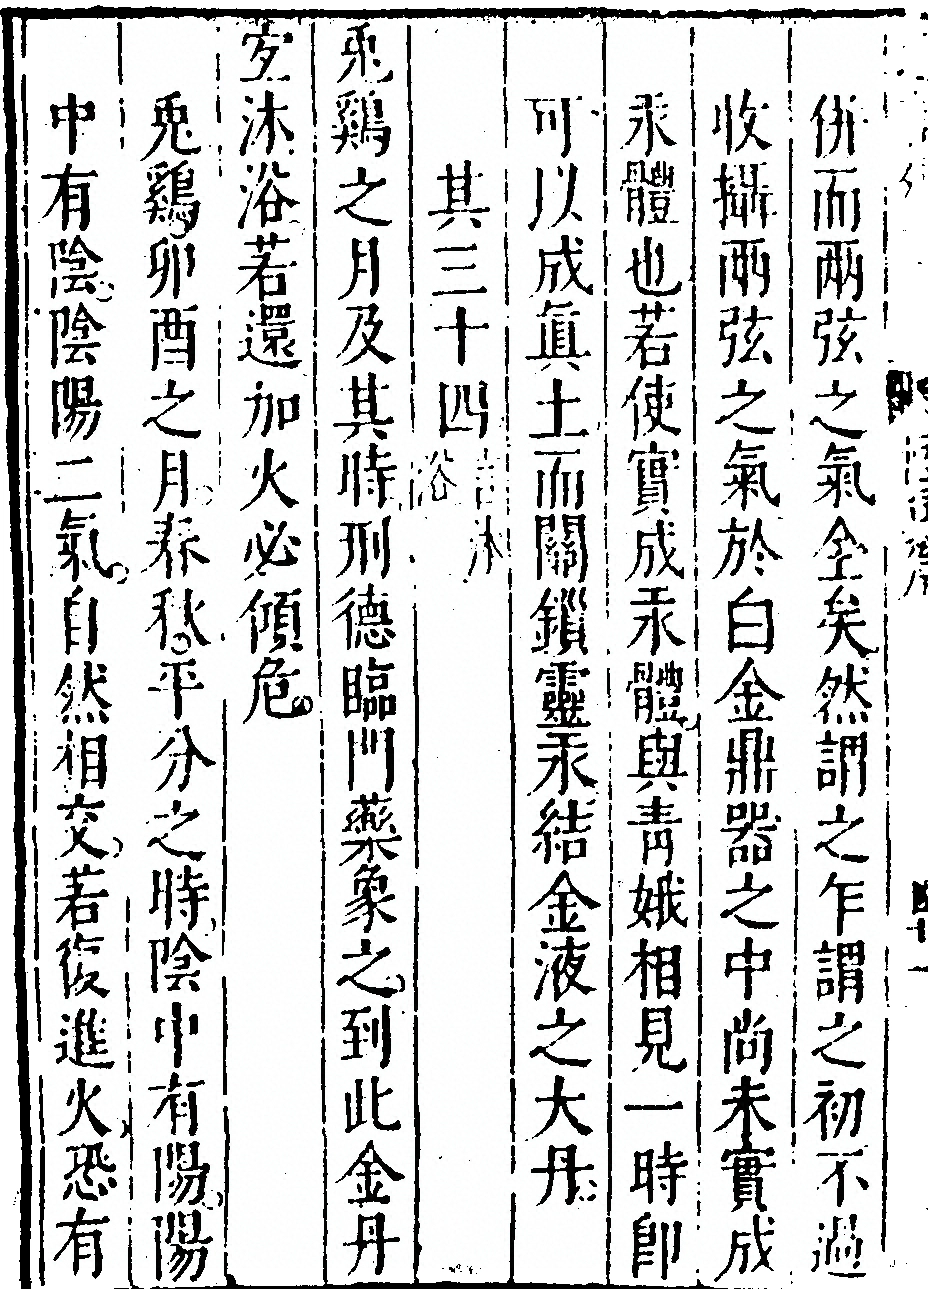 併而兩弦之氣全矣然謂之乍謂之初不過
收攝兩弦之氣於白金鼎器之中尚未實成
汞體也若使實成汞體與青娥相見一時卽
可以成眞土而關鎖靈汞結金液之大丹
其三十四
沐
浴
兎鷄之月及其時刑德臨門藥象之到此金丹
宜沐浴若還加火必傾危
兎鷄卯酉之月春秋平分之時陰中有陽陽
中有陰陰陽二氣自然相交若復進火恐有